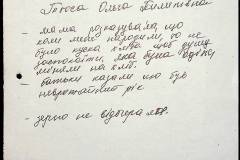 Ольга Пилипівна
- мама розказувала, що
коли мене народили, то не
було куска хліба щоб душу
заспокоїти, яка була одежа,
міняли на хліб.
- батьки казали що був
неврожайний рік
- зерно не відбирали.